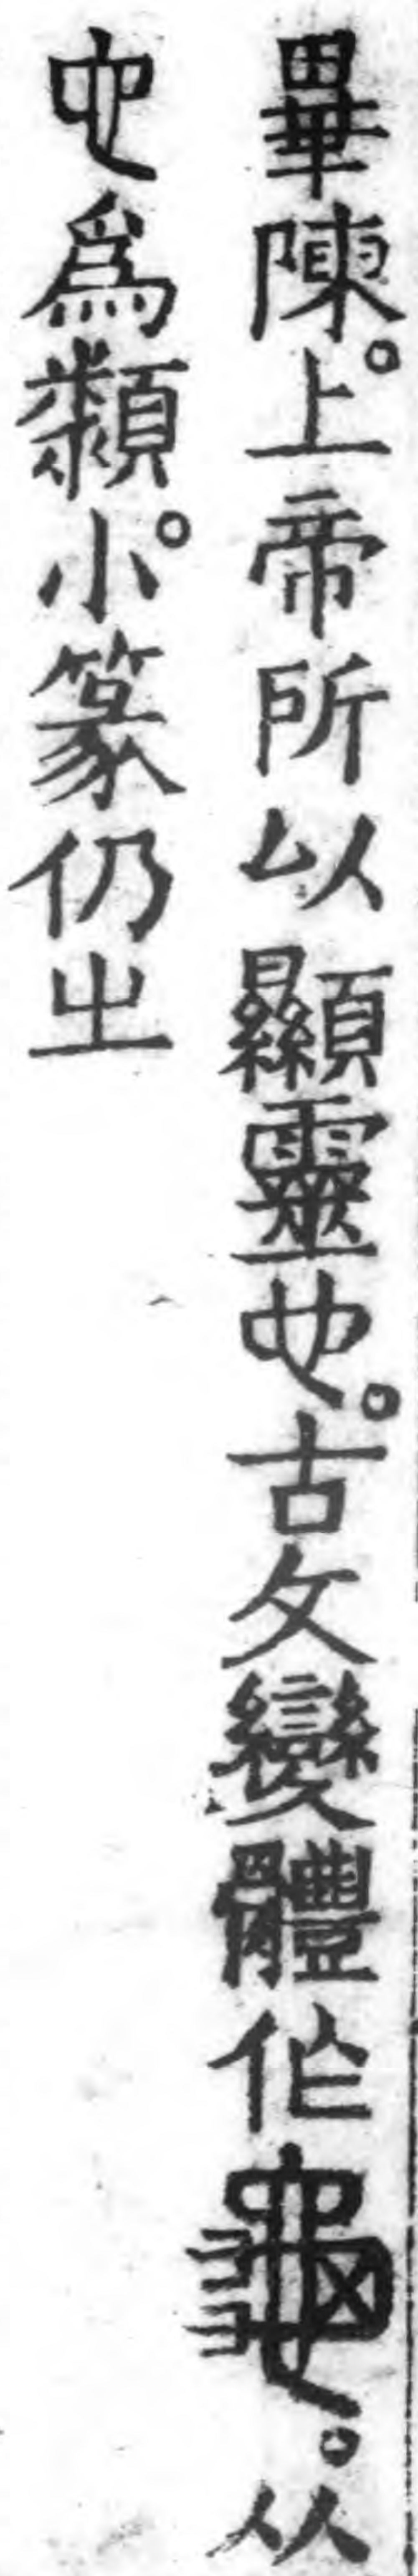 畢陳。上帝所以顯靈也。古文變體作龜。从
它爲類。小篆仍㞢